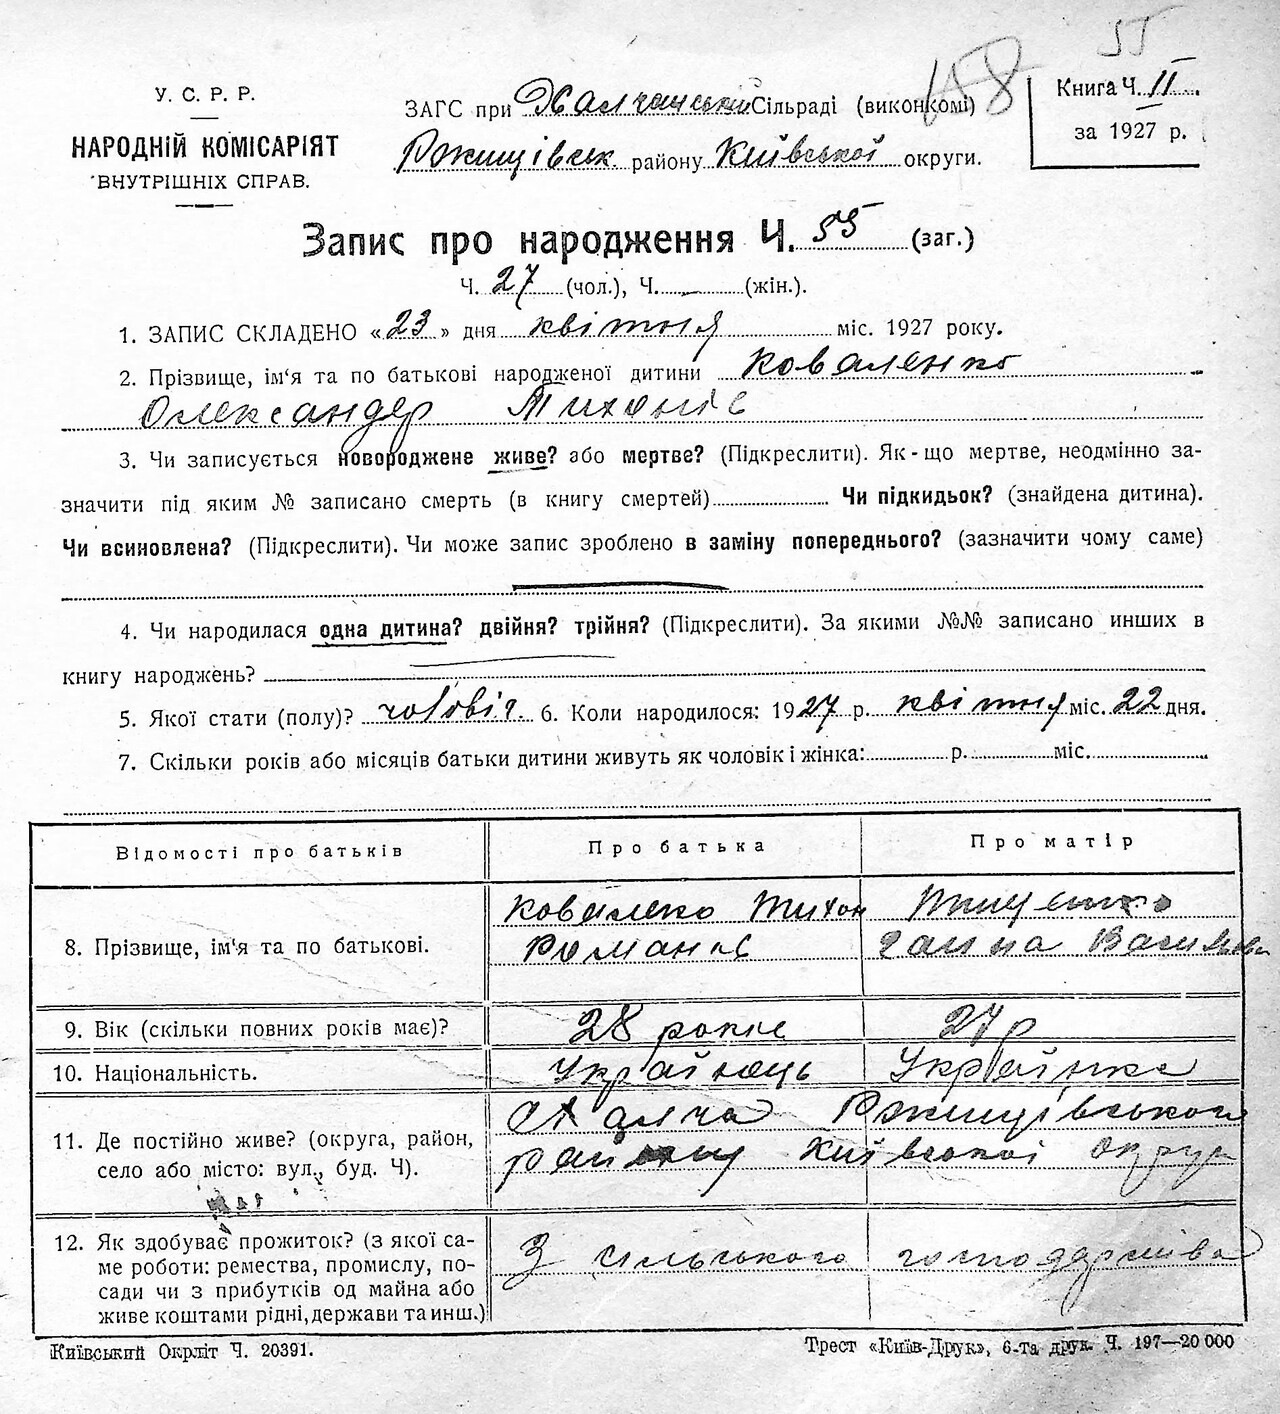 55
158
У. С. Р. Р.
НАРОДНІЙ КОМІСАРІЯТ
ВНУТРІШНІХ СПРАВ.
ЗАГС при Халчанській Сільраді (виконкомі)
Ржищівськ. району Київської округи.
Книга Ч. II
за 1927 р.
Запис про народження Ч. 55 (заг.)
Ч. 27 (чол.), Ч. — (жін.).
1. ЗАПИС СКЛАДЕНО «23» дня квітня міс. 1927 року.
2. Прізвище, ім'я та по батькові народженої дитини Коваленко
Олександер Тихонів
3. Чи записується новороджене живе? або мертве? (Підкреслити). Як-що мертве, неодмінно за-
значити під яким № записано смерть (в книгу смертей) Чи підкидьок? (знайдена дитина).
Чи всиновлена? (Підкреслити). Чи може запис зроблено в заміну попереднього? (зазначити чому саме)
4. Чи народилася одна дитина? двійня? трійня? (Підкреслити). За якими №№ записано инших в
книгу народжень?
5. Якої стати (полу)? чоловіч. 6. Коли народилося: 1927 р. квітня міс. 22 дня.
7. Скільки років або місяців батьки дитини живуть як чоловік і жінка: р. міс.
Відомості про батьків Про батька Про матір
8. Прізвище, ім'я та по батькові. Ковалеко Тихон Романів Тищенко Ганна Василівна
9. Вік (скільки повних років має)? 28 років 27 р
10. Національність. Українець Українка
11. Де постійно живе? (округа, район,
село або місто: вул., буд. Ч).
Халча Ржищівського
району Київської округи
12. Як здобуває прожиток? (з якої са-
ме роботи: ремества, промислу, по-
сади чи з прибутків од майна або
живе коштами рідні, держави та инш.)
З сільського господарства
Київський Окрліт Ч. 20391.
Трест «Київ-Друк», 6-та друк. Ч. 197—20 000